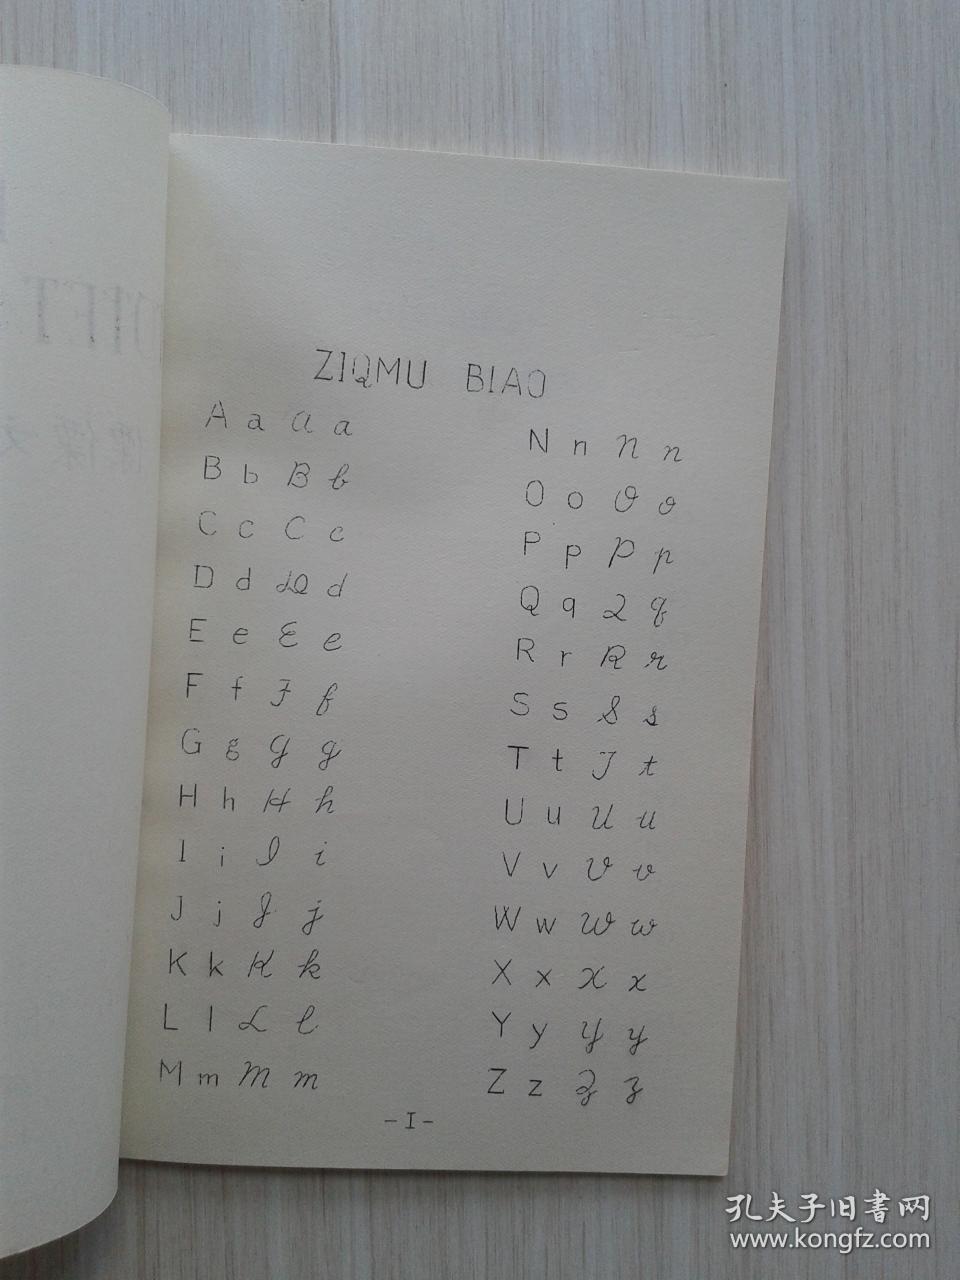 ZIQMU BIAO
A a A a
B b B b
C c C c
D d D d
E e E e
F f F f
G g G g
H h H h
I i I i
J j J j
K k K k
L l L l
M m M m
N n N n
O o O o
P p P p
Q q Q q
R r R r
S s S s
T t T t
U u U u
V v V v
W w W w
X x X x
Y y Y y
Z z Z z
-I-
孔夫子旧书网
www.kongfz.com